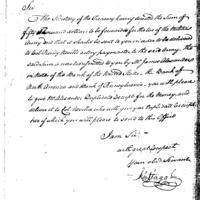 Sir
The Secretary of the Treasury having directed the Sum of
fifty thousand dollars to be furnished in Notes of the
Army and that it should be sent to you in order to be delivered
to Col. acting paymaster to the said Army. The
said sum is now transmitted to you by Mr James Alexander
in Notes of the Bank of the United States, the Bank of
North America and Bank of Pennsylvania, you will please
to give Mr Alexander Duplicate Receipts for the Money, and
deliver it to Col. who will give you Duplicate Receipts
two of which you will please to send to this Office
I am Sir
with great respect
your obed Servant